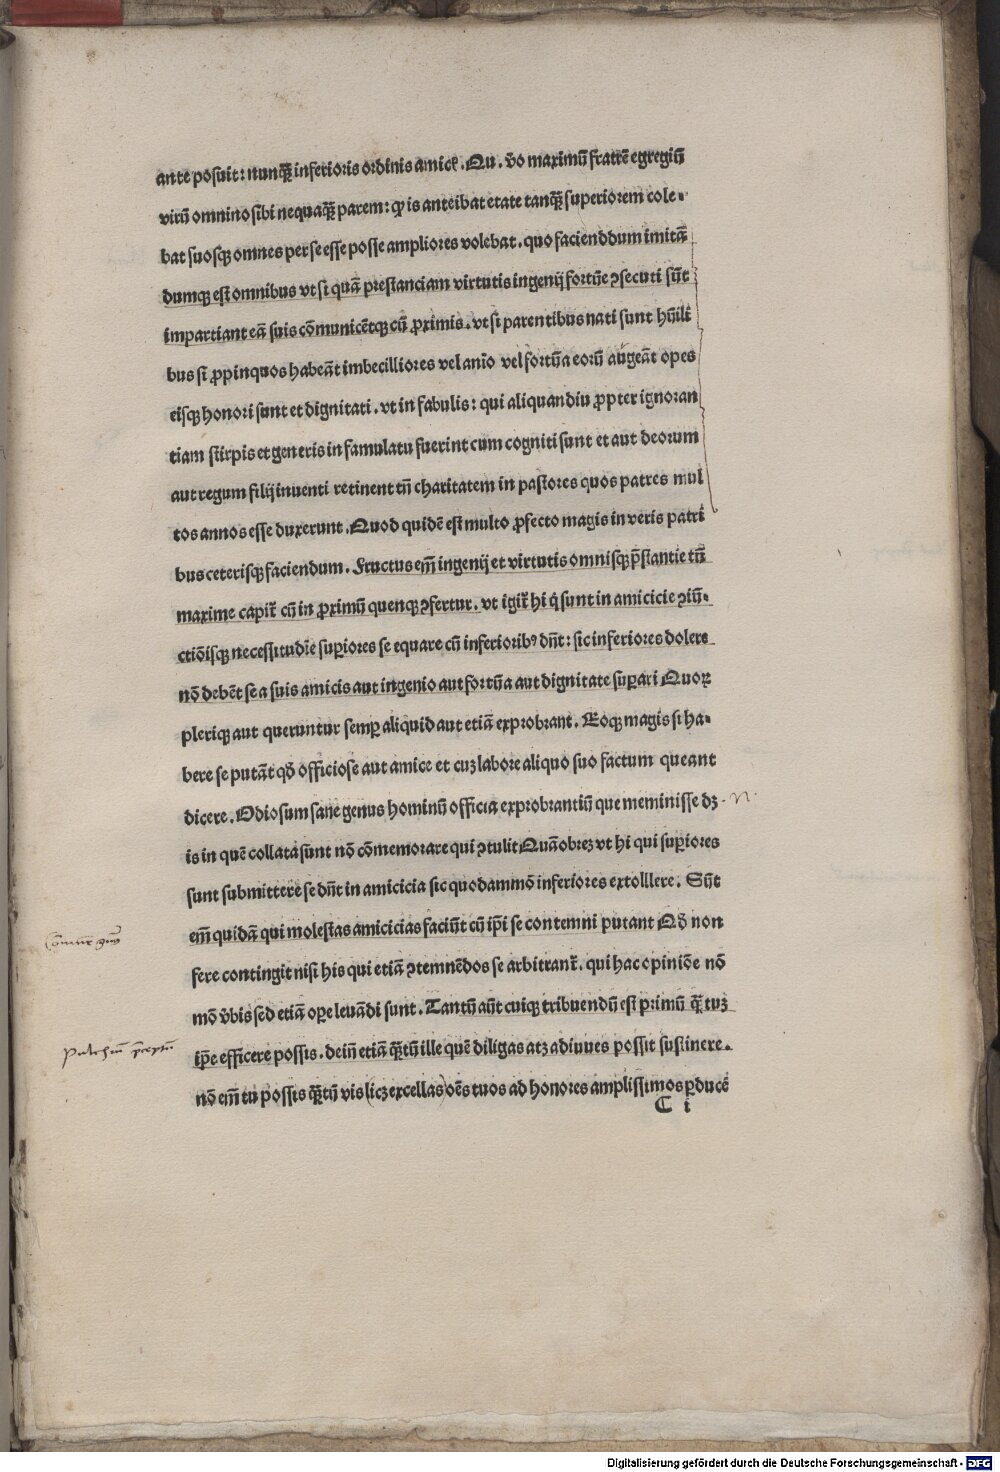 ante posuit: nunq̄ inferioris ordinis amicꝭ. Qu. v̄o maximū fratrē egregiū
virū omnino sibi nequaq̄ parem: ꝙ is anteibat etate tanq̄ superiorem cole-
bat suosqꝫ omnes per se esse posse ampliores volebat. quo facienddum imitā
dumqꝫ est omnibus vt si quā prestanciam virtutis ingenij fortūe ꝯsecuti sūt
impartiant eā suis cōmunicētqꝫ cū ꝓximis. vt si parentibus nati sunt hūili
bus si ꝓpinquos habeāt imbecilliores vel anīo vel fortūa eorū augeāt opes
eisqꝫ honori sunt et dignitati. vt in fabulis: qui aliquandiu ꝓpter ignoran
tiam stirpis et generis in famulatu fuerint cum cogniti sunt et aut deorum
aut regum filij inuenti retinent tñ charitatem in pastores quos patres mul
tos annos esse duxerunt. Quod quidē est multo ꝓfecto magis in veris patri
bus ceterisqꝫ faciendum. Fructus em̄ ingenij et virtutis omnisqꝫ p̄stantie tū
maxime capit᷑ cū in ꝓximū quenqꝫ ꝯfertur. vt igit᷑ hi q̇ sunt in amicicie ꝯiū-
ctiōisqꝫ necessitudīe suꝑiores se equare cū inferioribꝰ dn̄t: sic inferiores dolere
nō debēt se a suis amicis aut ingenio aut fortūa aut dignitate suꝑari Quoꝝ
pleriqꝫ aut queruntur semꝑ aliquid aut etiā exprobrant. Eoqꝫ magis si ha-
bere se putāt qd̄ officiose aut amice et cuꝫ labore aliquo suo factum queant
dicere. Odiosum sane genus hominū officia exprobrantiū que meminisse dꝫ
is in quē collata sunt nō cōmemorare qui ꝯtulit Quāobreꝫ vt hi qui suꝑiores
sunt submittere se dn̄t in amicicia sic quodammō inferiores extolllere. Sūt
em̄ quidā qui molestas amicicias faciūt cū ip̄i se contemni putant Qd̄ non
fere contingit nisi his qui etiā ꝯtemnēdos se arbitrant᷑. qui hac opiniōe nō
mō v̄bis sed etiā oꝑe leuādi sunt. Tantū aūt cuiqꝫ tribuendū est primū q̄ tuꝫ
ip̄e efficere possis. dein̄ etiā q̄tū ille quē diligas atꝫ adiuues possit sustinere.
nō em̄ tu possis q̄tū vis (licꝫ excellas) oēs tuos ad honores amplissimos ꝑducē
C i
n
Pulchrū preceptū
Digitalisierung gefördert durch die Deutsche Forschungsgemeinschaft - DFG